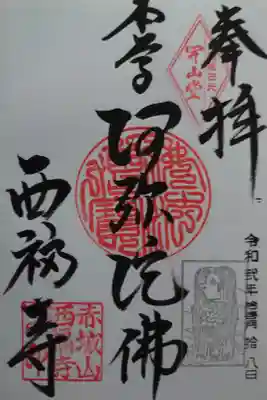 奉拝
令和弐年
拾八日
本尊
阿弥陀佛
西福寺
赤城山
西福寺